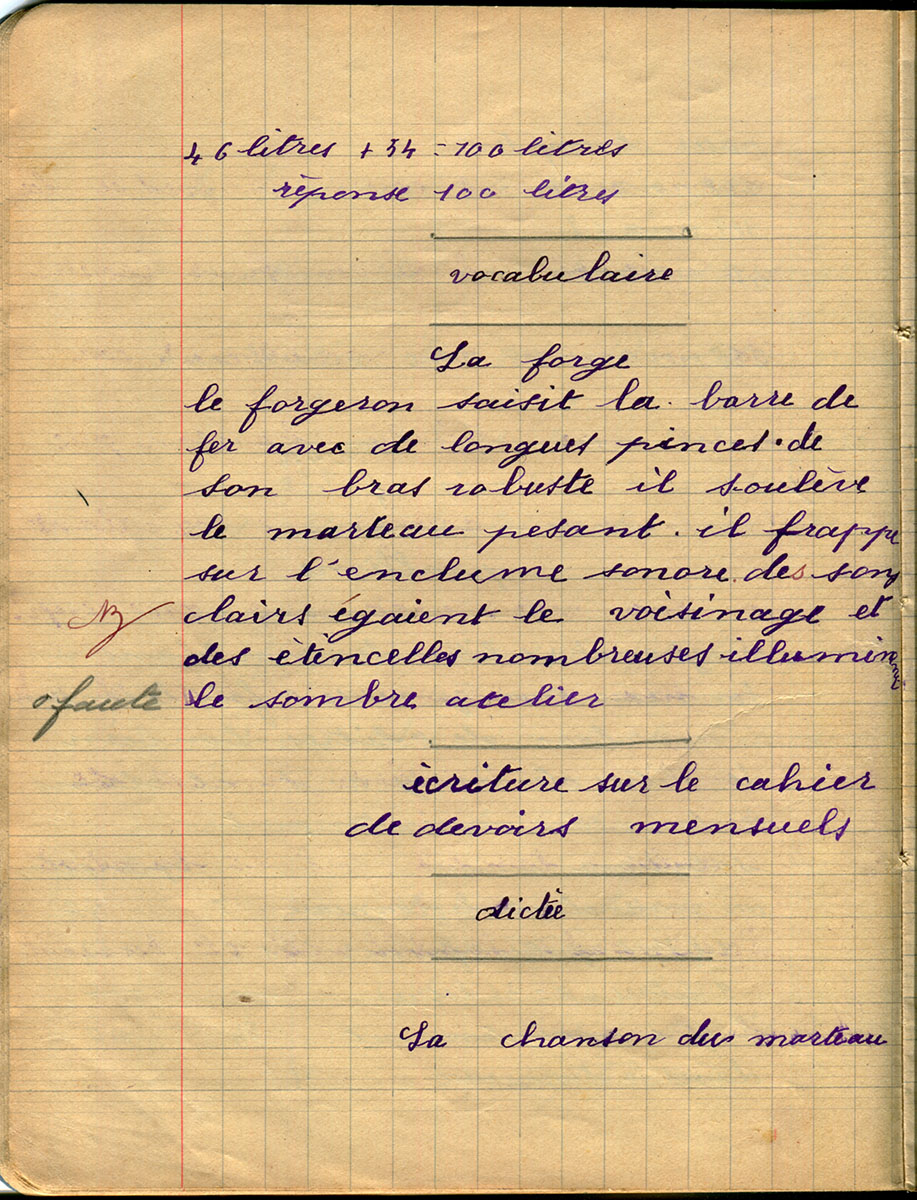 46 litres + 54 = 100 litres
réponse 100 litres
vocabulaire
La forge
le forgeron saisit la barre de
fer avec de longues pinces. de
son bras robuste il soulève
le marteau pesant. il frappe
sur l'enclume sonore. des sons
clairs égaient le voisinage et
des étencelles nombreuses illuminent
0 faute le sombre atelier
écriture sur le cahier
de devoirs mensuels
dictée
La chanson du marteau